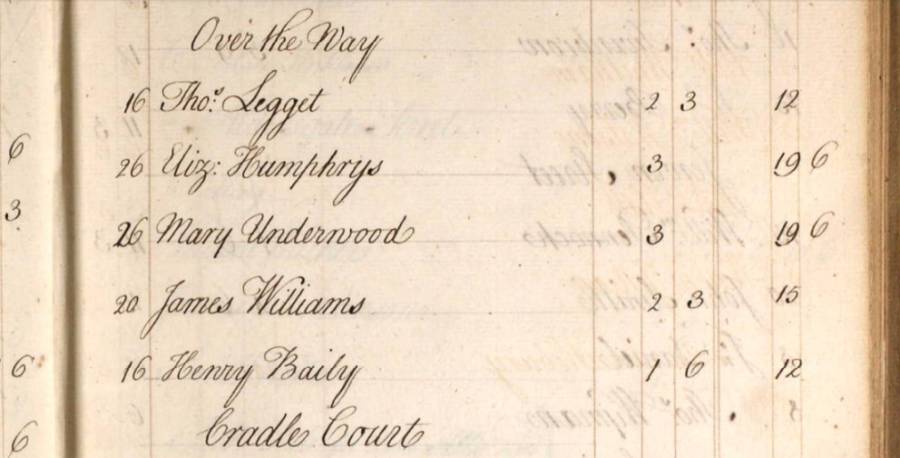 Over the Way
16 Thos. Legget 2 3 12
6
26 Eliz: Humphrys 3 19 6
3
26 Mary Underwood 3 19 6
20 James Williams 2 3 15
6 16 Henry Baily 1 6 12
Cradle Court
6